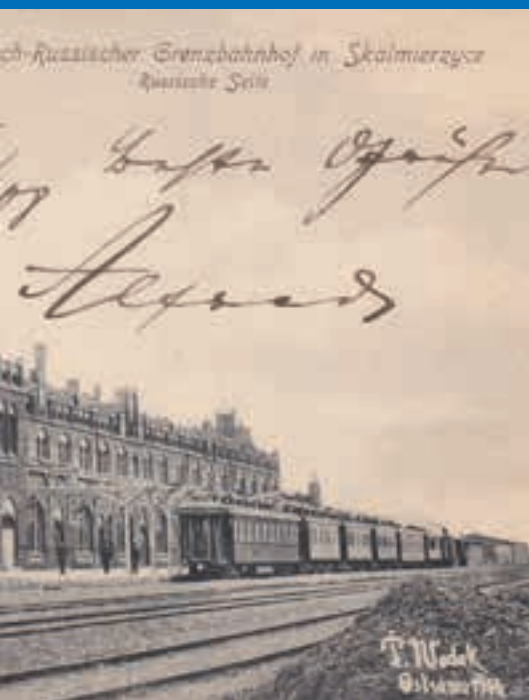 ch-Russischer Grenzbahnhof in Skalmierzyce
Russische Seite
09 Beste Grüße
Alfred
T. Wodak